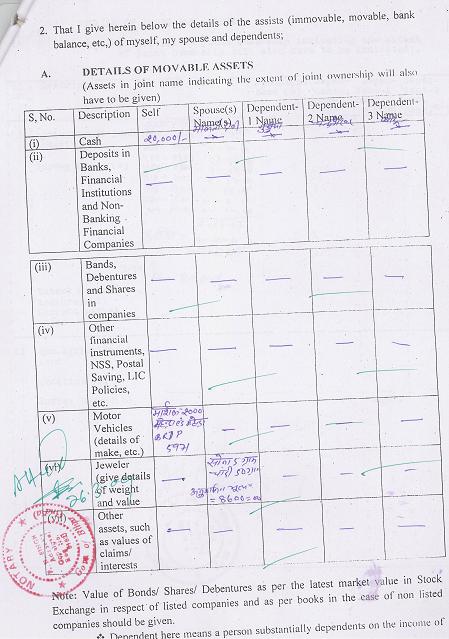 2. That I give herein below the details of the assists (immovable, movable, bank
balance, etc,) of myself, my spouse and dependents;
A. DETAILS OF MOVABLE ASSETS
(Assets in joint name indicating the extent of joint ownership will also
have to be given)
S, No. Description Self Spouse(s) Name(s) Dependent-1 Name Dependent-2 Name Dependent-3 Name
(i) Cash 20,000/-
(ii) Deposits in
Banks,
Financial
Institutions
and Non-
Banking
Financial
Companies
(iii) Bands,
Debentures
and Shares
in
companies
(iv) Other
financial
instruments,
NSS, Postal
Saving, LIC
Policies,
etc.
(v) Motor
Vehicles
(details of
make, etc.)
2000
BRJP
5971
(vi) Jeweler
(give details
of weight
and value
= 8600=00
(vii) Other
assets, such
as values of
claims/
interests
NOTARY
Note: Value of Bonds/ Shares/ Debentures as per the latest market value in Stock
Exchange in respect of listed companies and as per books in the case of non listed
companies should be given.
❖ Dependent here means a person substantially dependents on the income of